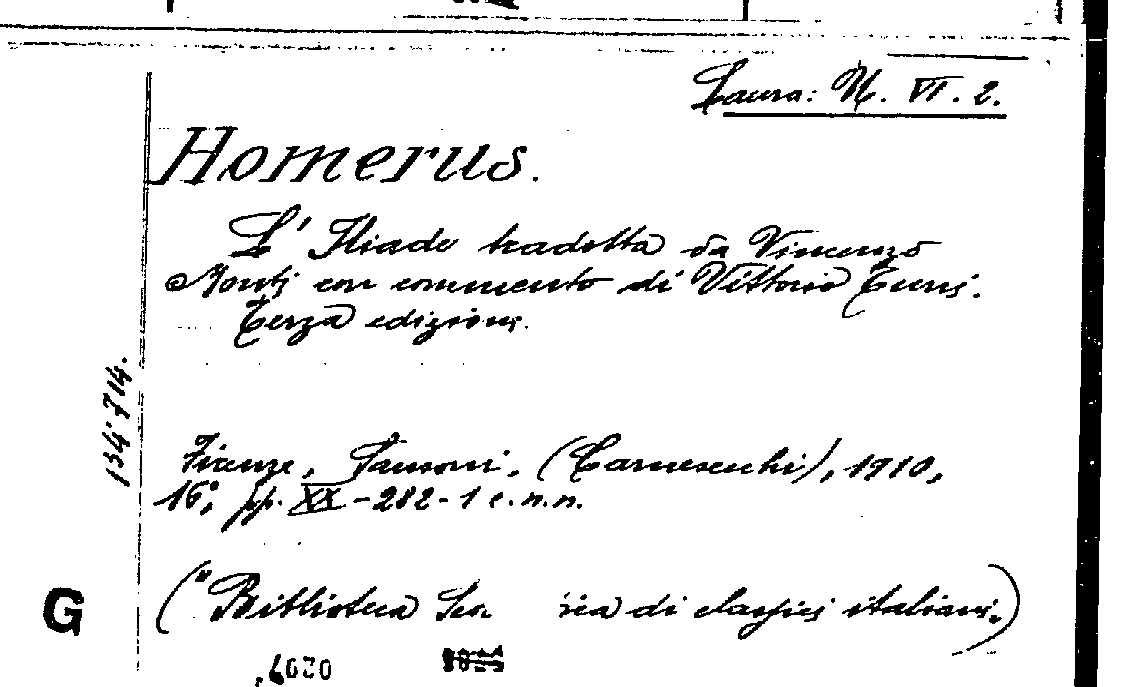 Laura: N. VI. 2.
Homerus.
L' Iliade tradotta da Vincenzo
Monti con commento di Vittorio Turri.
Terza edizione.
134'714.
Firenze, Sansoni, (Carnesecchi), 1910,
16°, pp. XX - 282 - 1 c.n.n.
G
("Biblioteca di classici italiani.)
4020